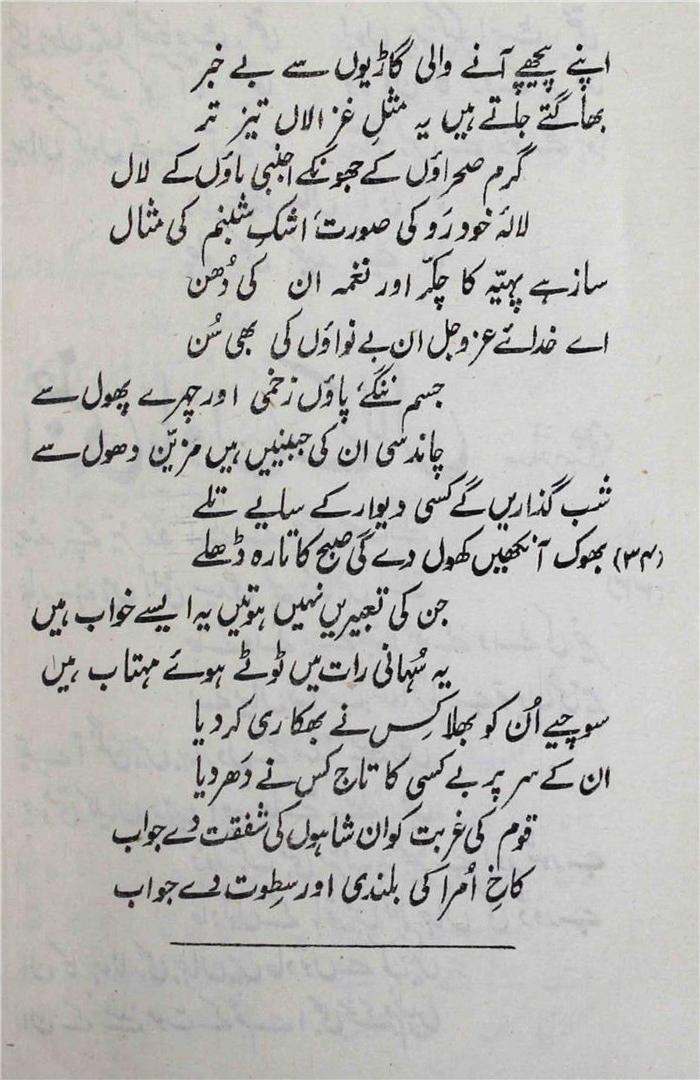 اپنے پیچھے آنے والی گاڑیوں سے بے خبر
بھاگتے جاتے ہیں یہ مثلِ غزالاں تیز تر
گرم صحراؤں کے جھونکے اجنبی ماؤں کے لال
لالۂ خود رَو کی صورت، اشکِ شبنم کی مثال
ساز ہے پہیّہ کا چکّر اور نغمہ ان کی دُھن
اے خدائے عزوجل ان بے نواؤں کی بھی سُن
جسم ننگے، پاؤں زخمی اور چہرے پھول سے
چاند سی ان کی جبینیں ہیں مزیّن دھول سے
شب گذاریں گے کسی دیوار کے سایے تلے
(۳۴) بھوک آنکھیں کھول دے گی صبح کا تارہ ڈھلے
جن کی تعبیریں نہیں ہوتیں یہ ایسے خواب ہیں
یہ سُہانی رات میں ٹوٹے ہوئے مہتاب ہیں
سوچیے اُن کو بھلا کِس نے بھکاری کر دیا
ان کے سر پر بے کسی کا تاج کس نے دَھر دیا
قوم کی غربت کو ان شاہوں کی شفقت دے جواب
کاخِ اُمرا کی بلندی اور سطوت دے جواب